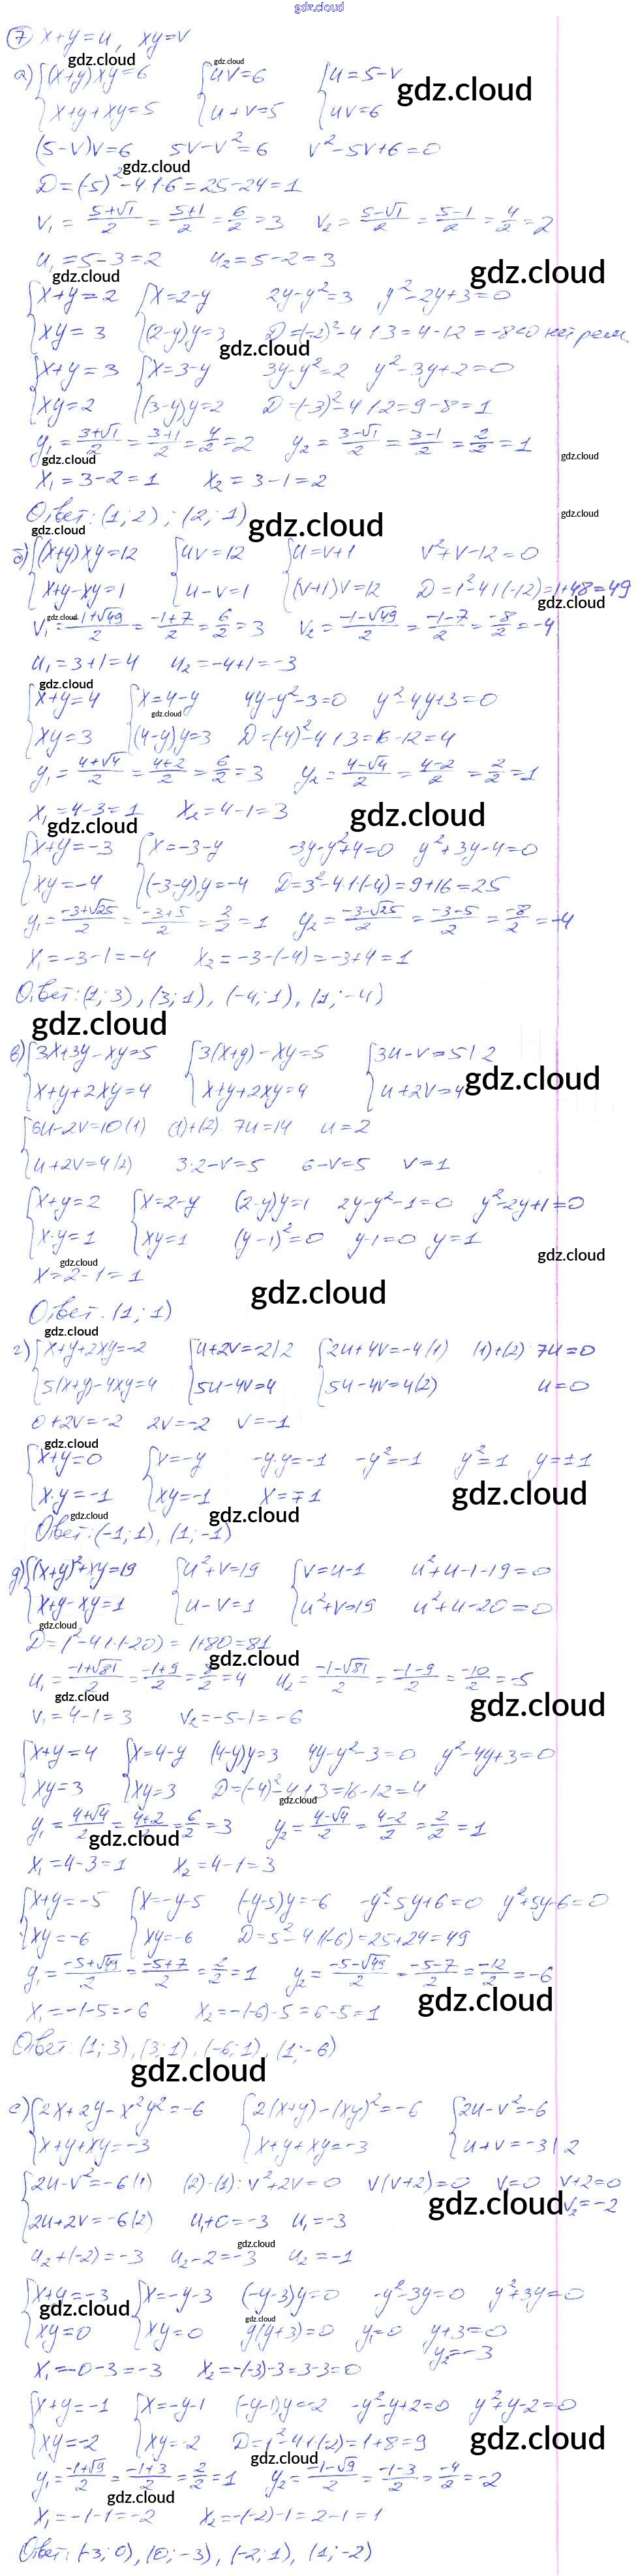 gdz.cloud
⑦ x+y=u, xy=v
а) {(x+y)xy=6 {uv=6 {u=5-v
x+y+xy=5 u+v=5 uv=6
(5-v)v=6 5v-v²=6 v²-5v+6=0
D=(-5)²-4·1·6=25-24=1
v₁=(5+√1)/2=(5+1)/2=6/2=3 v₂=(5-√1)/2=(5-1)/2=4/2=2
u₁=5-3=2 u₂=5-2=3
{x+y=2 {x=2-y 2y-y²=3 y²-2y+3=0
xy=3 (2-y)y=3 D=(-2)²-4·1·3=4-12=-8<0 нет реш.
{x+y=3 {x=3-y 3y-y²=2 y²-3y+2=0
xy=2 (3-y)y=2 D=(-3)²-4·1·2=9-8=1
y₁=(3+√1)/2=(3+1)/2=4/2=2 y₂=(3-√1)/2=(3-1)/2=2/2=1
x₁=3-2=1 x₂=3-1=2
Ответ: (1;2); (2;1)
б) {(x+y)xy=12 {uv=12 {u=v+1 v²+v-12=0
x+y-xy=1 u-v=1 (v+1)v=12 D=1²-4·1·(-12)=1+48=49
v₁=(-1+√49)/2=(-1+7)/2=6/2=3 v₂=(-1-√49)/2=(-1-7)/2=-8/2=-4
u₁=3+1=4 u₂=-4+1=-3
{x+y=4 {x=4-y 4y-y²-3=0 y²-4y+3=0
xy=3 (4-y)y=3 D=(-4)²-4·1·3=16-12=4
y₁=(4+√4)/2=(4+2)/2=6/2=3 y₂=(4-√4)/2=(4-2)/2=2/2=1
x₁=4-3=1 x₂=4-1=3
{x+y=-3 {x=-3-y -3y-y²+4=0 y²+3y-4=0
xy=-4 (-3-y)y=-4 D=3²-4·1·(-4)=9+16=25
y₁=(-3+√25)/2=(-3+5)/2=2/2=1 y₂=(-3-√25)/2=(-3-5)/2=-8/2=-4
x₁=-3-1=-4 x₂=-3-(-4)=-3+4=1
Ответ: (1;3), (3;1), (-4;1), (1;-4)
в) {3x+3y-xy=5 {3(x+y)-xy=5 {3u-v=5 |·2
x+y+2xy=4 x+y+2xy=4 u+2v=4
{6u-2v=10 (1) (1)+(2) 7u=14 u=2
u+2v=4 (2) 3·2-v=5 6-v=5 v=1
{x+y=2 {x=2-y (2-y)y=1 2y-y²-1=0 y²-2y+1=0
x·y=1 xy=1 (y-1)²=0 y-1=0 y=1
x=2-1=1
Ответ. (1;1)
г) {x+y+2xy=-2 {u+2v=-2 |·2 {2u+4v=-4 (1) (1)+(2) 7u=0
5(x+y)-4xy=4 5u-4v=4 5u-4v=4 (2) u=0
0+2v=-2 2v=-2 v=-1
{x+y=0 {x=-y -y·y=-1 -y²=-1 y²=1 y=±1
x·y=-1 xy=-1 x=∓1
Ответ: (-1;1), (1;-1)
д) {(x+y)²+xy=19 {u²+v=19 {v=u-1 u²+u-1-19=0
x+y-xy=1 u-v=1 u²+v=19 u²+u-20=0
D=1²-4·1·(-20)=1+80=81
u₁=(-1+√81)/2=(-1+9)/2=8/2=4 u₂=(-1-√81)/2=(-1-9)/2=-10/2=-5
v₁=4-1=3 v₂=-5-1=-6
{x+y=4 {x=4-y (4-y)y=3 4y-y²-3=0 y²-4y+3=0
xy=3 xy=3 D=(-4)²-4·1·3=16-12=4
y₁=(4+√4)/2=(4+2)/2=6/2=3 y₂=(4-√4)/2=(4-2)/2=2/2=1
x₁=4-3=1 x₂=4-1=3
{x+y=-5 {x=-y-5 (-y-5)y=-6 -y²-5y+6=0 y²+5y-6=0
xy=-6 xy=-6 D=5²-4·1·(-6)=25+24=49
y₁=(-5+√49)/2=(-5+7)/2=2/2=1 y₂=(-5-√49)/2=(-5-7)/2=-12/2=-6
x₁=-1-5=-6 x₂=-(-6)-5=6-5=1
Ответ: (1;3), (3;1), (-6;1), (1;-6)
е) {2x+2y-x²y²=-6 {2(x+y)-(xy)²=-6 {2u-v²=-6
x+y+xy=-3 x+y+xy=-3 u+v=-3 |·2
{2u-v²=-6 (1) (2)-(1): v²+2v=0 v(v+2)=0 v₁=0 v+2=0
2u+2v=-6 (2) u₁+0=-3 u₁=-3 v₂=-2
u₂+(-2)=-3 u₂-2=-3 u₂=-1
{x+y=-3 {x=-y-3 (-y-3)y=0 -y²-3y=0 y²+3y=0
xy=0 xy=0 y(y+3)=0 y₁=0 y+3=0
y₂=-3
x₁=-0-3=-3 x₂=-(-3)-3=3-3=0
{x+y=-1 {x=-y-1 (-y-1)y=-2 -y²-y+2=0 y²+y-2=0
xy=-2 xy=-2 D=1²-4·1·(-2)=1+8=9
y₁=(-1+√9)/2=(-1+3)/2=2/2=1 y₂=(-1-√9)/2=(-1-3)/2=-4/2=-2
x₁=-1-1=-2 x₂=-(-2)-1=2-1=1
Ответ: (-3;0), (0;-3), (-2;1), (1;-2)